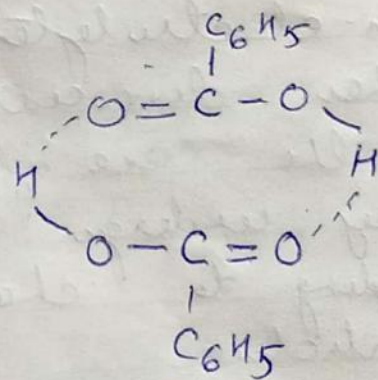 C6H5
O = C - O
H H
O - C = O
C6H5